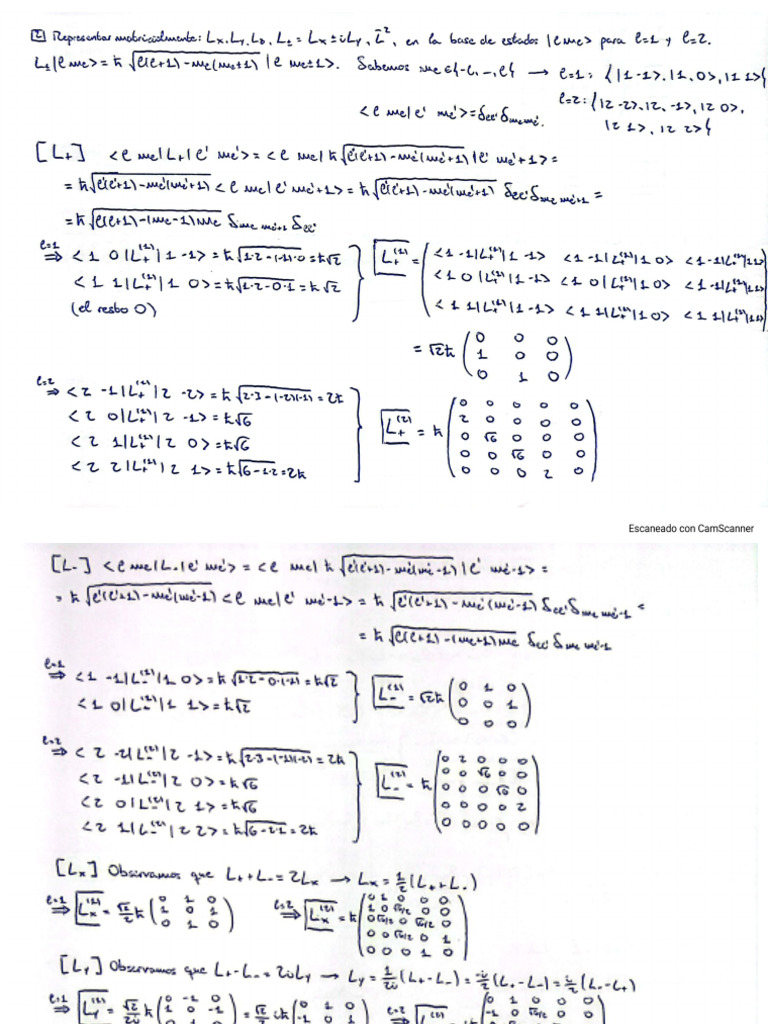 2 Representar matricialmente: Lx, Ly, Lz, L± = Lx ± iLy, L⃗², en la base de estados |ℓ mℓ> para ℓ=1 y ℓ=2.
L±|ℓ mℓ> = ħ√(ℓ(ℓ+1)-mℓ(mℓ±1)) |ℓ mℓ±1>. Sabemos mℓ∈{-ℓ, ..., ℓ} → ℓ=1: {|1 -1>, |1, 0>, |1 1>}
ℓ=2: {|2 -2>, |2, -1>, |2 0>,
|2 1>, |2 2>}
<ℓ mℓ|ℓ' mℓ'> = δℓℓ' δmℓmℓ'.
[L+] <ℓ mℓ|L+|ℓ' mℓ'> = <ℓ mℓ|ħ√(ℓ'(ℓ'+1)-mℓ'(mℓ'+1)) |ℓ' mℓ'+1> =
= ħ√(ℓ'(ℓ'+1)-mℓ'(mℓ'+1)) <ℓ mℓ|ℓ' mℓ'+1> = ħ√(ℓ'(ℓ'+1)-mℓ'(mℓ'+1)) δℓℓ' δmℓ mℓ'+1 =
= ħ√(ℓ(ℓ+1)-(mℓ-1)mℓ) δmℓ mℓ'+1 δℓℓ'
ℓ=1 ⇒ <1 0|L+^(1)|1 -1> = ħ√(1·2-(-1)·0) = ħ√2
<1 1|L+^(1)|1 0> = ħ√(1·2-0·1) = ħ√2
(el resto 0)
L+^(1) = ( <1 -1|L+^(1)|1 -1> <1 -1|L+^(1)|1 0> <1 -1|L+^(1)|1 1>
<1 0|L+^(1)|1 -1> <1 0|L+^(1)|1 0> <1 -1|L+^(1)|1 1>
<1 1|L+^(1)|1 -1> <1 1|L+^(1)|1 0> <1 1|L+^(1)|1 1> )
= √2ħ ( 0 0 0
1 0 0
0 1 0 )
ℓ=2 ⇒ <2 -1|L+^(2)|2 -2> = ħ√(2·3-(-2)(-1)) = 2ħ
<2 0|L+^(2)|2 -1> = ħ√6
<2 1|L+^(2)|2 0> = ħ√6
<2 2|L+^(2)|2 1> = ħ√(6-1·2) = 2ħ
L+^(2) = ħ ( 0 0 0 0 0
2 0 0 0 0
0 √6 0 0 0
0 0 √6 0 0
0 0 0 2 0 )
Escaneado con CamScanner
[L-] <ℓ mℓ|L-|ℓ' mℓ'> = <ℓ mℓ|ħ√(ℓ'(ℓ'+1)-mℓ'(mℓ'-1)) |ℓ' mℓ'-1> =
= ħ√(ℓ'(ℓ'+1)-mℓ'(mℓ'-1)) <ℓ mℓ|ℓ' mℓ'-1> = ħ√(ℓ'(ℓ'+1)-mℓ'(mℓ'-1)) δℓℓ' δmℓ mℓ'-1 =
= ħ√(ℓ(ℓ+1)-(mℓ+1)mℓ) δℓℓ' δmℓ mℓ'-1
ℓ=1 ⇒ <1 -1|L-^(1)|1 0> = ħ√(1·2-0·(-1)) = ħ√2
<1 0|L-^(1)|1 1> = ħ√2
L-^(1) = √2ħ ( 0 1 0
0 0 1
0 0 0 )
ℓ=2 ⇒ <2 -2|L-^(2)|2 -1> = ħ√(2·3-(-1)(-2)) = 2ħ
<2 -1|L-^(2)|2 0> = ħ√6
<2 0|L-^(2)|2 1> = ħ√6
<2 1|L-^(2)|2 2> = ħ√(6-2·1) = 2ħ
L-^(2) = ħ ( 0 2 0 0 0
0 0 √6 0 0
0 0 0 √6 0
0 0 0 0 2
0 0 0 0 0 )
[Lx] Observamos que L+ + L- = 2Lx → Lx = 1/2 (L+ + L-)
ℓ=1 ⇒ Lx^(1) = √2/2 ħ ( 0 1 0
1 0 1
0 1 0 )
ℓ=2 ⇒ Lx^(2) = ħ ( 0 1 0 0 0
1 0 √6/2 0 0
0 √6/2 0 √6/2 0
0 0 √6/2 0 1
0 0 0 1 0 )
[Ly] Observamos que L+ - L- = 2iLy → Ly = 1/2i (L+ - L-) = -i/2 (L+ - L-) = i/2 (L- - L+)
ℓ=1 ⇒ Ly^(1) = √2/2i ħ ( 0 -1 0
1 0 -1
= √2/2 iħ ( 0 1 0
-1 0 1
ℓ=2 ⇒ ( 0 1 0 0 0
-1 0 √6/2 0 0